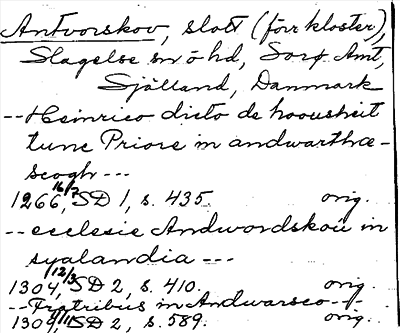 Antvorskov, slott (förr kloster),
Slagelse sn o hd, Sorø Amt,
Själland, Danmark
-- Heinrico dicto de hoousheit
tunc Priore in andwarthæ-
scogh ---
1266 16/7, SD 1, s. 435. orig.
-- ecclesie Andwordskou in
syalandia ---
1304 12/3, SD 2, s. 410. orig.
-- Fratribus in Andwarsco ---
1309 SD 2, s. 589. orig.